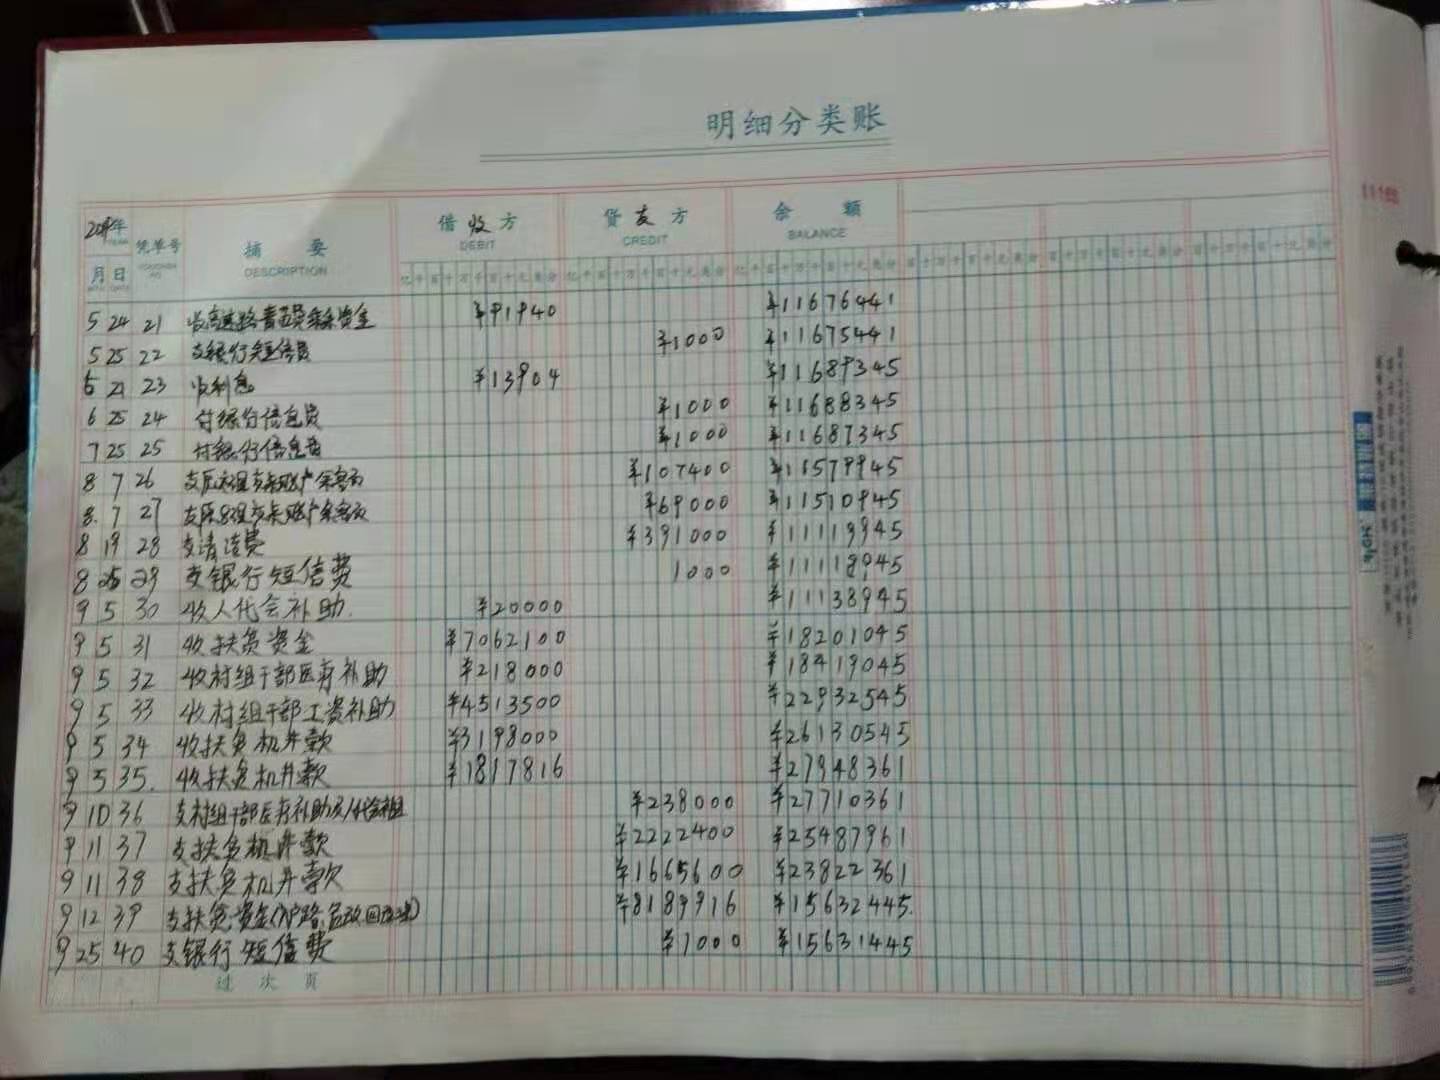 明细分类账
年 凭单号 摘要 借收方 贷支方 余额
YEAR VOUCHER NO. DESCRIPTION DEBIT CREDIT BALANCE
月 日
亿千百十万千百十元角分 亿千百十万千百十元角分 亿千百十万千百十元角分
5 24 21 收高速路青苗费剩余资金 ¥91940 ¥11676441
5 25 22 支银行短信费 ¥1000 ¥11675441
21 23 收利息 ¥13904 ¥11689345
6 25 24 付银行信息费 ¥1000 ¥11688345
7 25 25 付银行信息费 ¥1000 ¥11687345
8 7 26 ¥107400 ¥11579945
8 7 27 ¥69000 ¥11510945
8 19 28 支清渣费 ¥391000 ¥11119945
8 25 29 支银行短信费 1000 ¥11118945
9 5 30 收人代会补助 ¥20000 ¥11138945
9 5 31 收扶贫资金 ¥7062100 ¥18201045
9 5 32 收村组干部医疗补助 ¥218000 ¥18419045
9 5 33 收村组干部工资补助 ¥4513500 ¥22932545
9 5 34 收扶贫机井款 ¥3198000 ¥26130545
9 5 35 收扶贫机井款 ¥1817816 ¥27948361
9 10 36 支村组干部医疗补助及人代会补助 ¥238000 ¥27710361
9 11 37 支扶贫机井款 ¥2222400 ¥25487961
9 11 38 支扶贫机井款 ¥1665600 ¥23822361
9 12 39 支扶贫资金 ¥8189916 ¥15632445
9 25 40 支银行短信费 ¥1000 ¥15631445
过次页